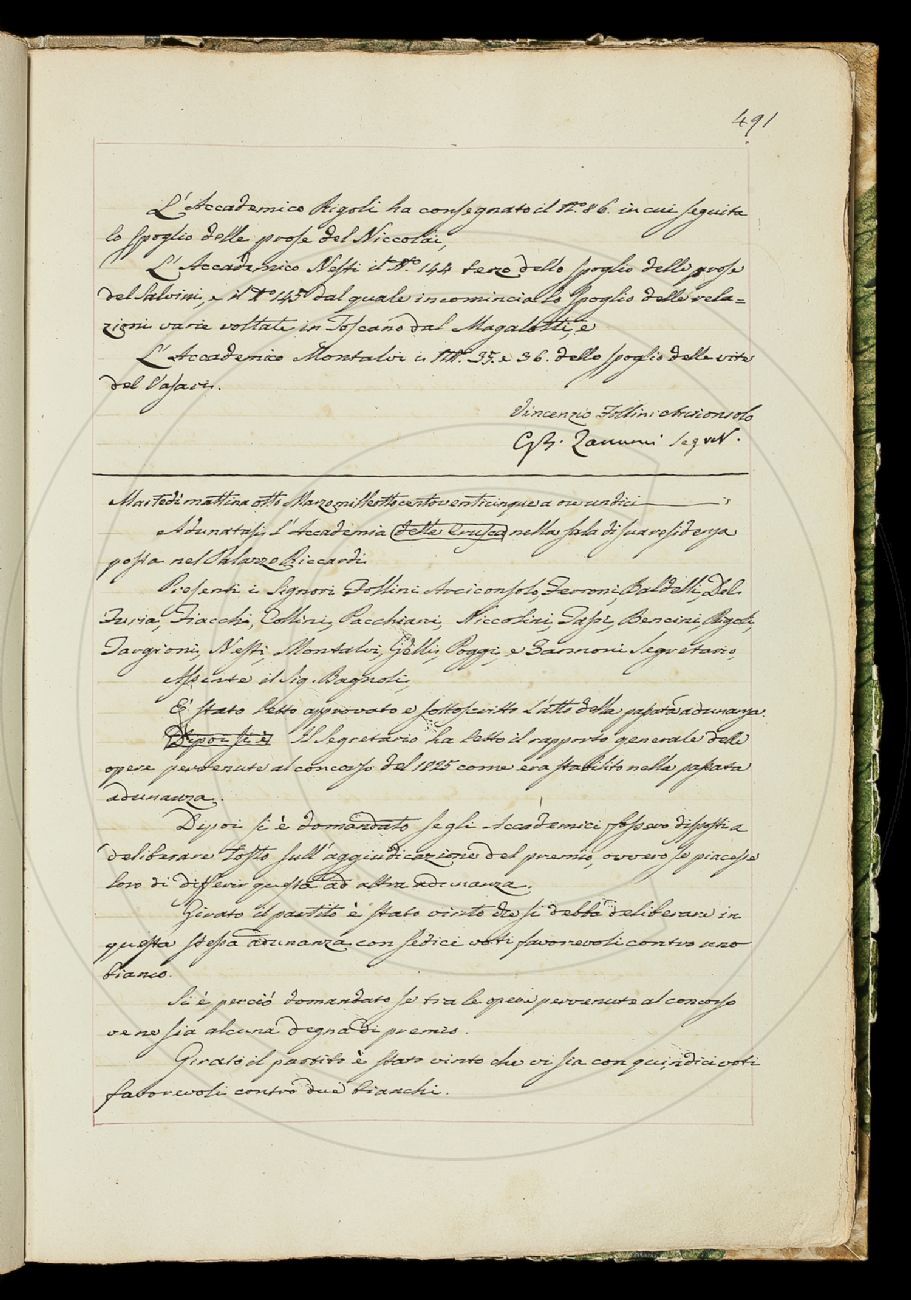 491
L'Accademico Rigoli ha consegnato il N.o 86. in cui seguita
lo spoglio delle prose del Niccolai,
L'Accademico Nesti il N.o 144 terzo dello spoglio delle prose
del Salvini, e il N.o 145 dal quale incomincia lo spoglio delle rela-
zioni varie voltate in Toscano dal Magalotti, e
L'Accademico Montalvi i NN.i 35. e 36. dello spoglio delle vite
del Vasari.
Vincenzio Follini Arciconsolo
Zannoni Segret.
Martedì mattina otto Marzo milleottocentoventicinque a ore undici
Adunatasi l'Accademia della Crusca nella sala di sua residenza
posta nel Palazzo Riccardi.
Presenti i Signori Follini Arciconsolo, Ferroni, Baldelli, Del
Furia, Fiacchi, Collini, Pacchiani, Niccolini, Tassi, Bencini, Rigoli,
Targioni, Nesti, Montalvi, Gelli, Poggi, e Zannoni Segretario,
Assente il Sig. Bagnoli,
È stato letto approvato e sottoscritto l'atto della passata adunanza.
Dipoi si è Il Segretario ha letto il rapporto generale delle
opere pervenute al concorso del 1825 come era stabilito nella passata
adunanza.
Dipoi si è domandato se gli Accademici fossero disposti a
deliberare tosto sull'aggiudicazione del premio, ovvero se piacesse
loro di differir questa ad altra adunanza.
Girato il partito è stato vinto che si debba deliberare in
questa stessa adunanza con sedici voti favorevoli contro uno
bianco.
Si è perciò domandato se tra le opere pervenute al concorso
ve ne sia alcuna degna di premio.
Girato il partito è stato vinto che vi sia con quindici voti
favorevoli contro due bianchi.